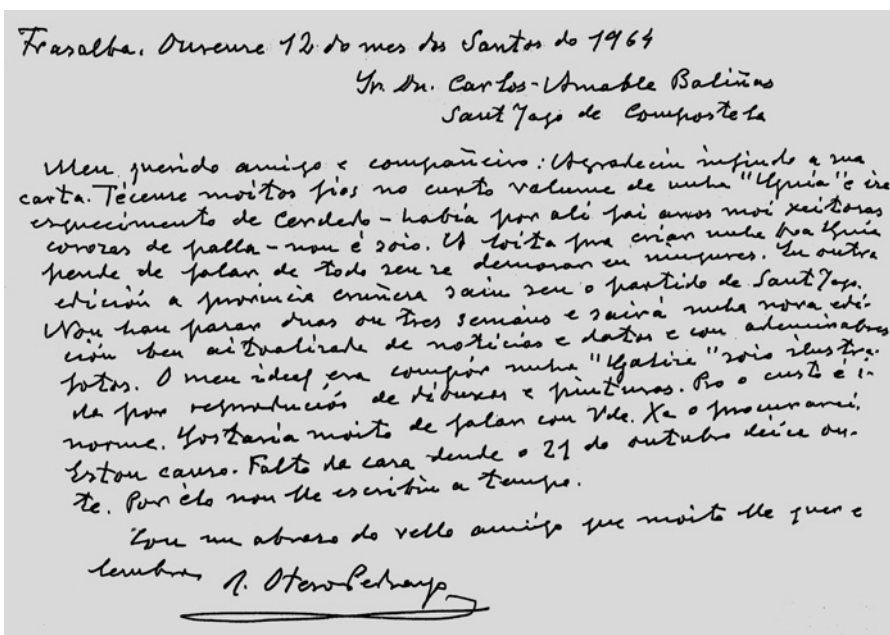 Trasalba. Ourense 12 do mes dos Santos do 1964
Sr. Dn. Carlos-Amable Baliñas
Sant Yago de Compostela
Meu querido amigo e compañeiro: Agradecin infindo a sua
carta. Técense moitos fios no curto volume de unha "Guia" e ise
esquecimento de Cerdedo - había por alí fai anos moi xeitosas
corozas de palla - non é soio. A loita pra criar unha boa Guia
pende de falar de todo sen se demorar en ningures. En outra
edición a provincia cruñesa saiu sen o partido de Sant Yago.
Non han pasar duas ou tres semans e sairá unha nova edi-
ción ben aitoalizada de noticias e datos e con ademirabres
fotos. O meu ideal, era compór unha "Galizia" soio ilustra-
da por reproduciós de dibuxos e pinturas. Pro o custo é i-
norme. Gostaria moito de falar con Vde. Xa o procurarei.
Estou canso. Falto da casa dende o 21 do outubro deica on-
te. Por elo non lle escribin a tempo.
Con un abrazo do vello amigo que moito lle quer e
lembra
R. Otero Pedrayo